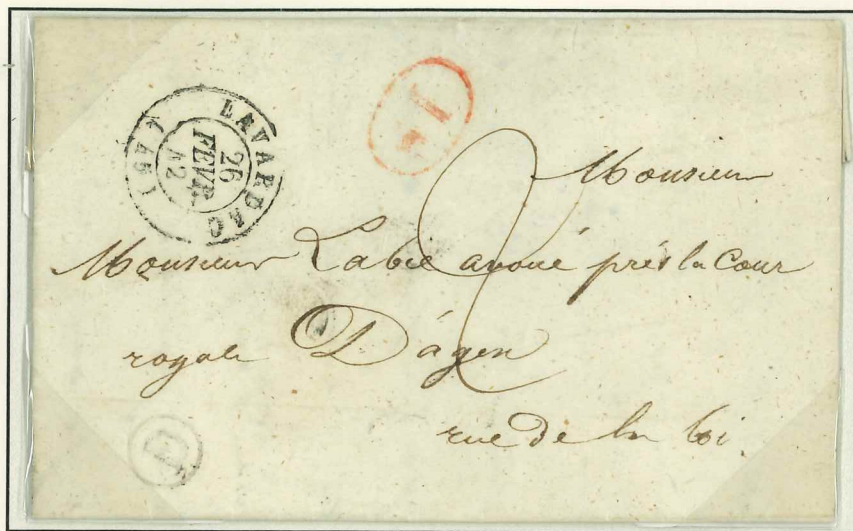 LAVARDAC
26
FEVR.
42
(45)
2
Monsieur
Monsieur Labie avoué prés la Cour
royale D'agen
rue De la loi